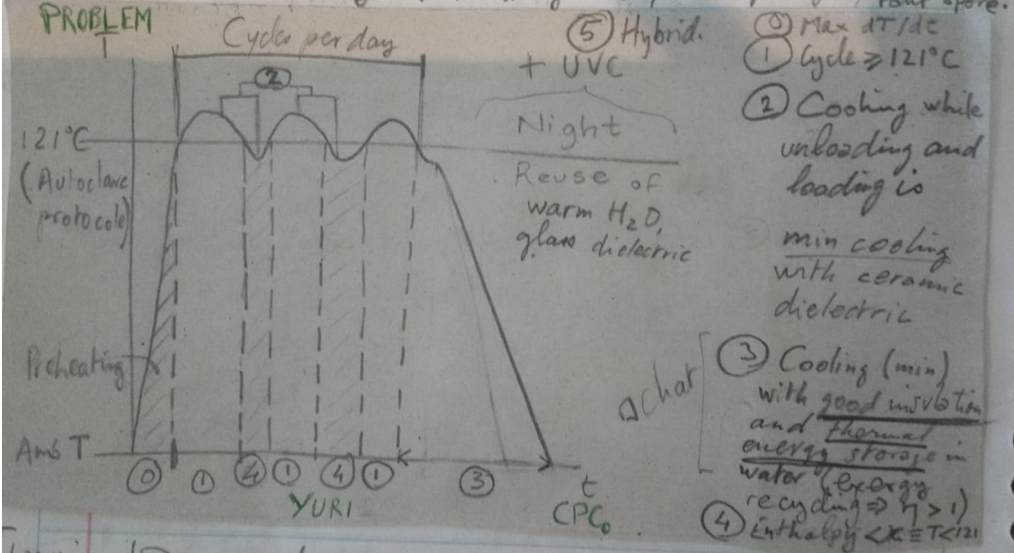 PROBLEM
I
Cycles per day
②
121°C
(Autoclave
protocole)
Preheating
Amb T
⓪ ① ④ ① ④ ① ③ t
YURI
CPC₀
⑤ Hybrid.
+ UVC
Night
Reuse of
warm H₂O,
glass dielectric
⓪ Max dT/dt
① Cycle ⩾ 121°C
② Cooling while
unloading and
loading is
min cooling
with ceramic
dielectric
③ Cooling (min)
with good insulation
and thermal
energy storage in
water (exergy
recycling ⇒ η > 1)
④ Enthalpy < ≡ T<121